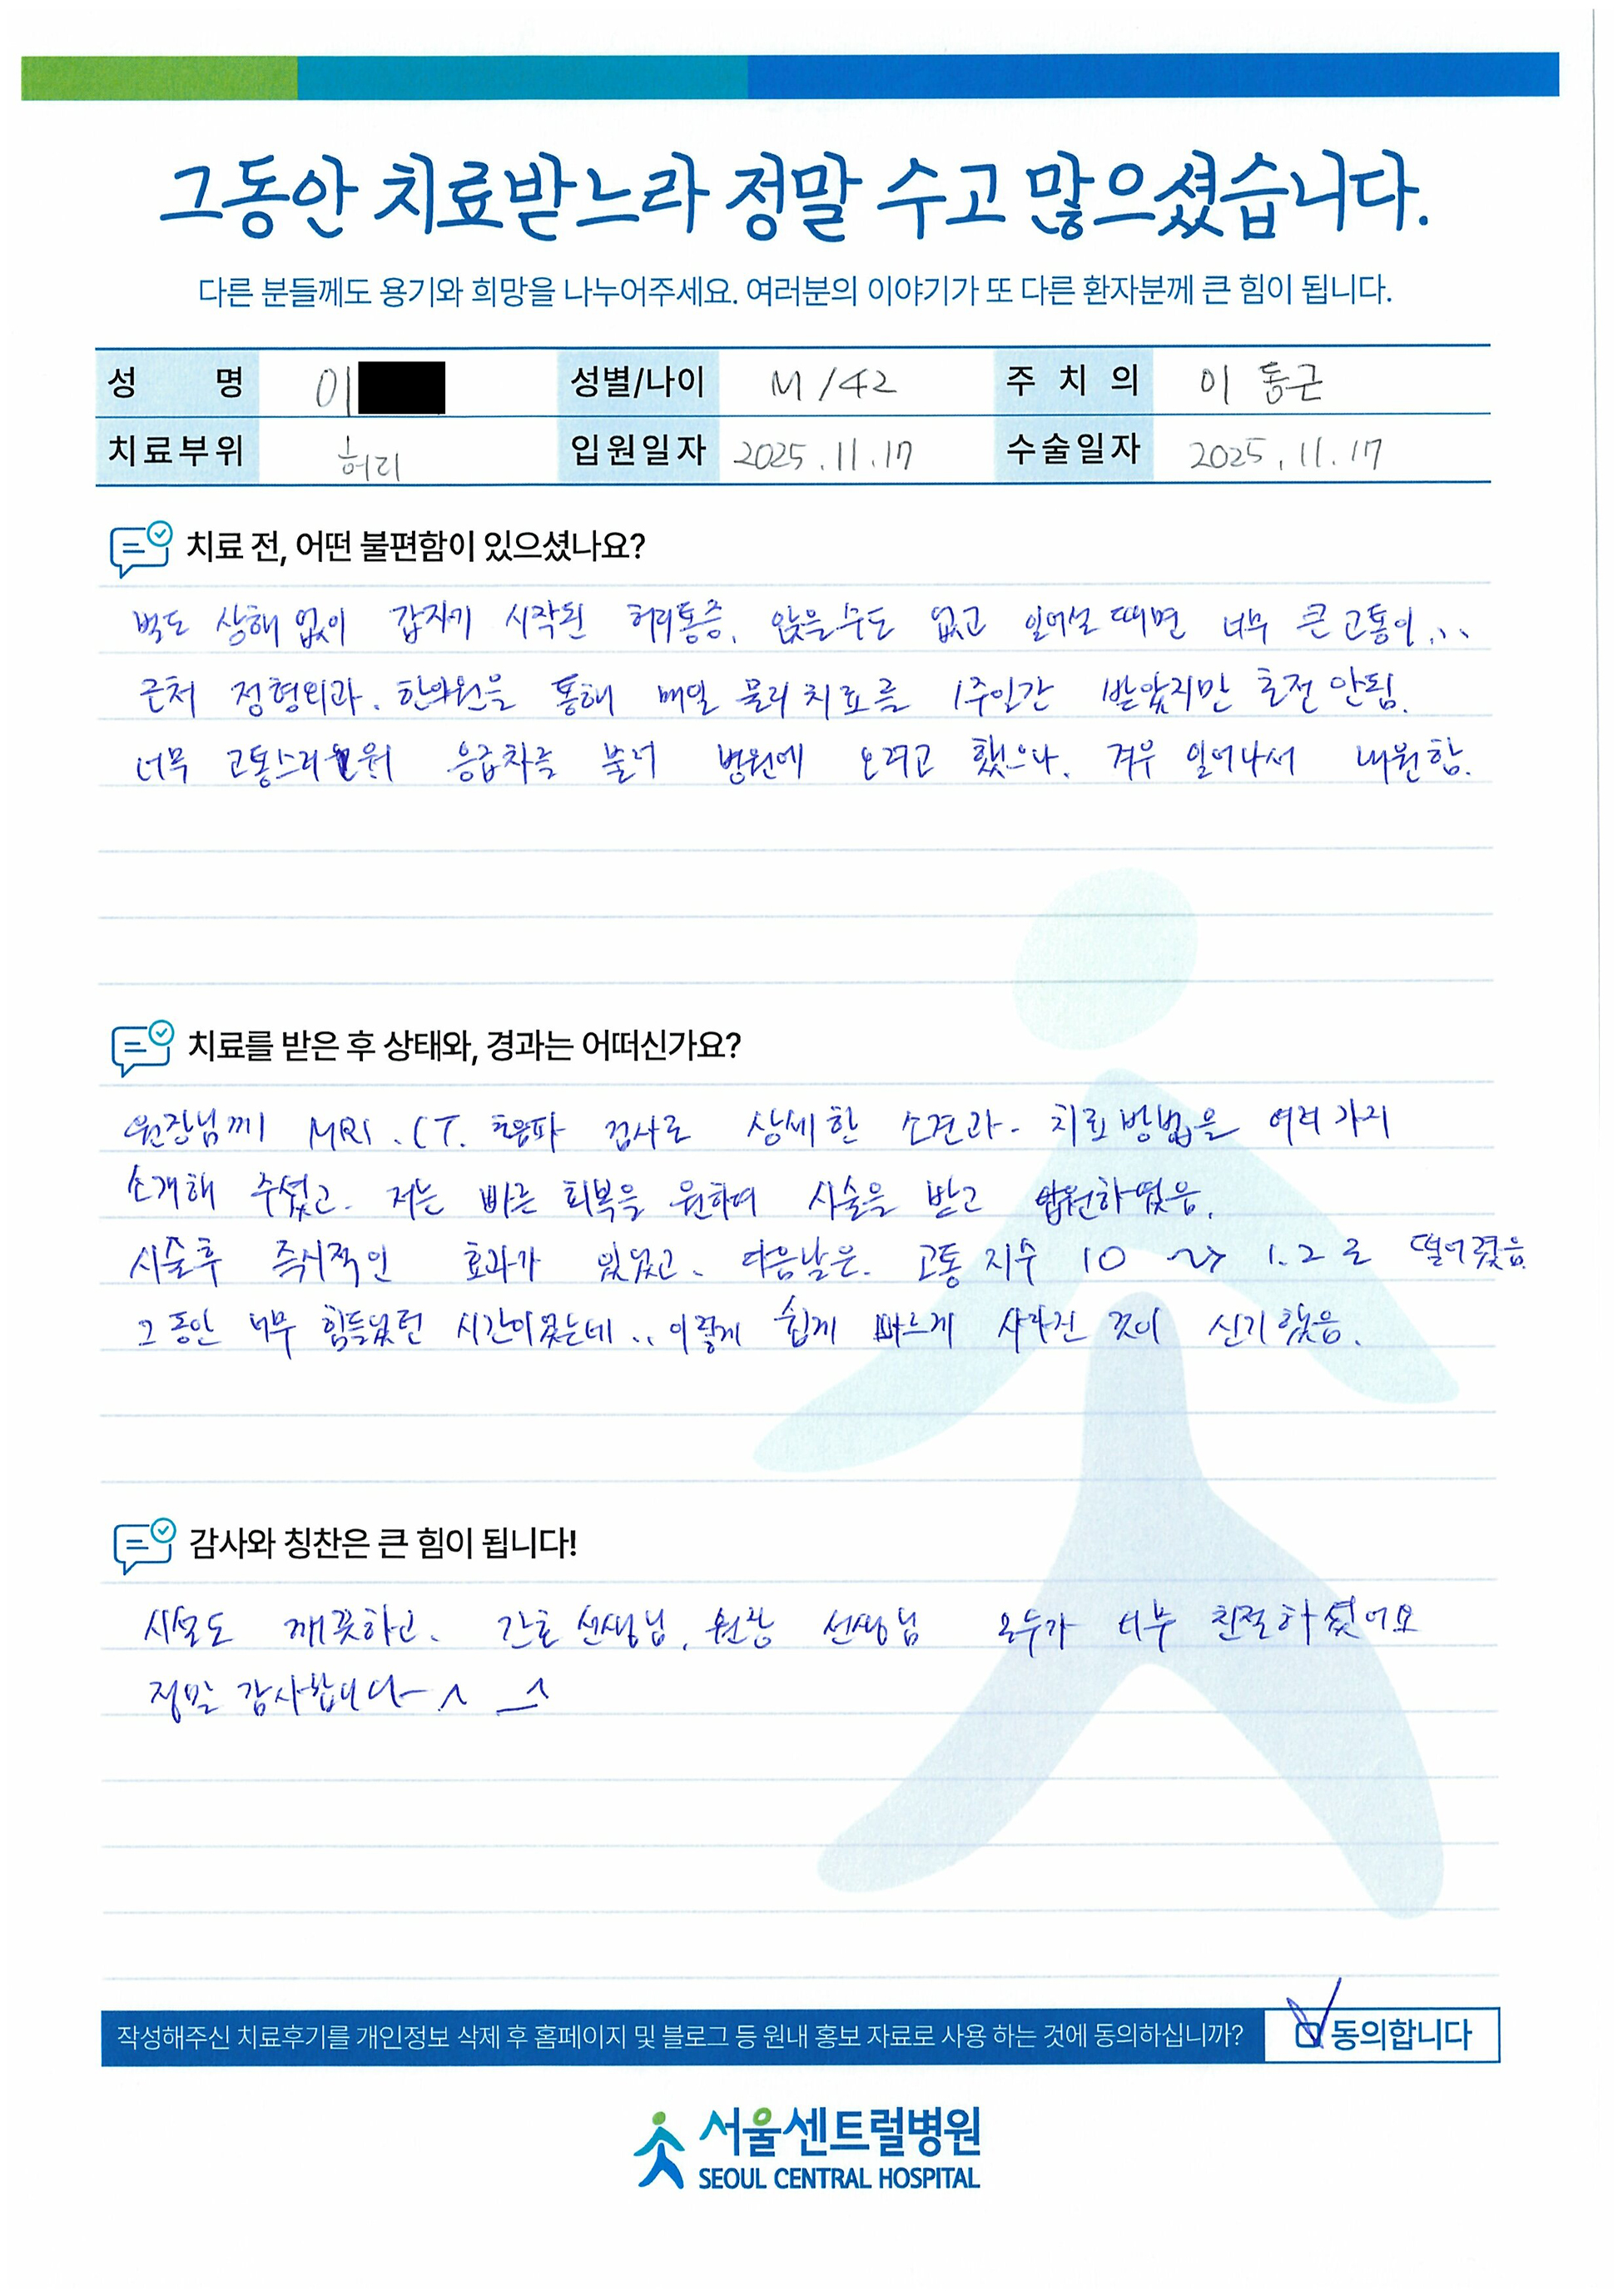 그동안 치료받느라 정말 수고 많으셨습니다.
다른 분들께도 용기와 희망을 나누어주세요. 여러분의 이야기가 또 다른 환자분께 큰 힘이 됩니다.
성 명 이 성별/나이 M/42 주 치 의 이동근
치료부위 허리 입원일자 2025.11.17 수술일자 2025.11.17
치료 전, 어떤 불편함이 있으셨나요?
별도 상해 없이 갑자기 시작된 허리통증. 앉을수도 없고 일어설 때면 너무 큰 고통이...
근처 정형외과. 한의원을 통해 매일 물리치료를 1주일간 받았지만 호전 안됨.
너무 고통스러워 응급차를 불러 병원에 오려고 했으나. 겨우 일어나서 내원함.
치료를 받은 후 상태와, 경과는 어떠신가요?
원장님께 MRI. CT. 초음파 검사로 상세한 소견과. 치료방법을 여러가지
소개해 주셨고. 저는 빠른 회복을 원하여 시술을 받고 입원하였음.
시술후 즉시적인 효과가 있었고. 다음날은. 고통 지수 10 ~> 1.2로 떨어졌음.
그동안 너무 힘들었던 시간이었는데.. 이렇게 쉽게 빠르게 사라진 것이 신기했음.
감사와 칭찬은 큰 힘이 됩니다!
시설도 깨끗하고. 간호 선생님, 원장 선생님 모두가 너무 친절하셨어요
정말 감사합니다~ ^_^
작성해주신 치료후기를 개인정보 삭제 후 홈페이지 및 블로그 등 원내 홍보 자료로 사용 하는 것에 동의하십니까? 동의합니다
서울센트럴병원
SEOUL CENTRAL HOSPITAL